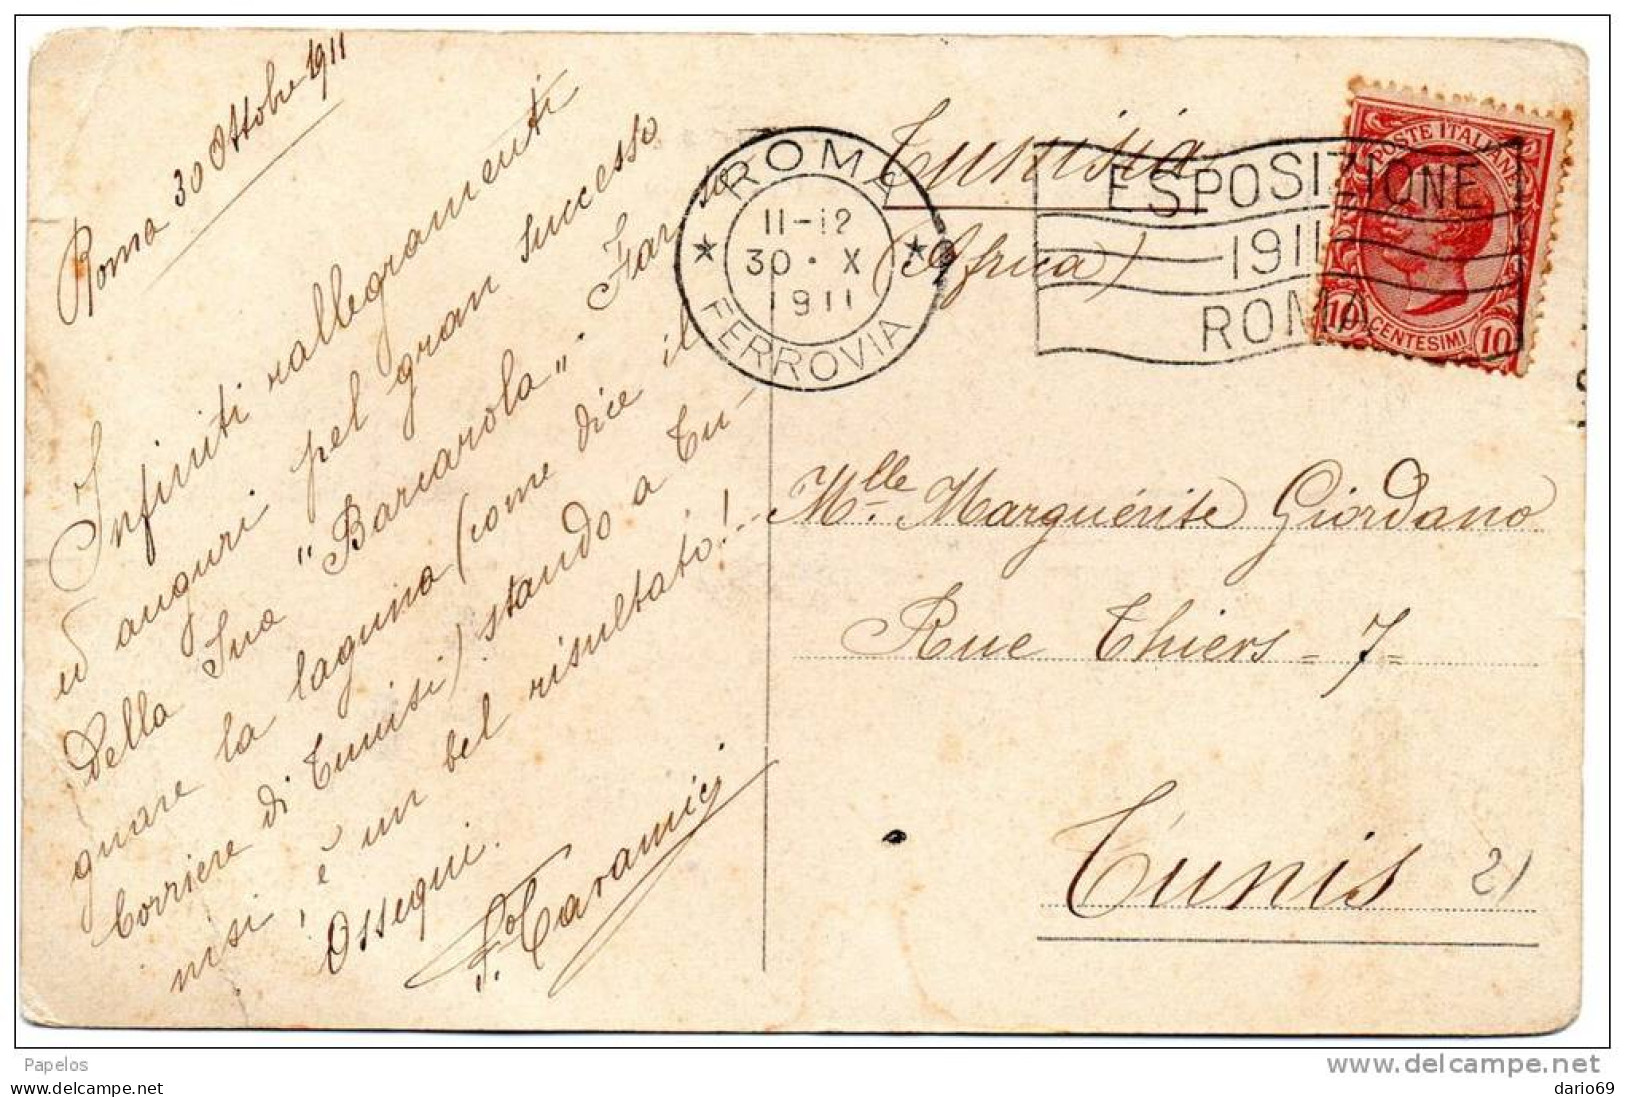 Roma 30 Ottobre 1911
Infiniti rallegramenti
ed auguri pel gran successo
della Sua "Barcarola". Far so
gnare la laguna (come dice il
Corriere di Tunisi) stando a Tu-
nisi, è un bel risultato!
Ossequi.
ROMA
FERROVIA
11-12
30 · X
1911
ESPOSIZIONE
1911
ROMA
POSTE ITALIANE
10 CENTESIMI 10
Tunisia
(Africa)
Mlle Marguérite Giordano
Rue Thiers = 7 =
Tunis
21
Papelos
www.delcampe.net
dario69